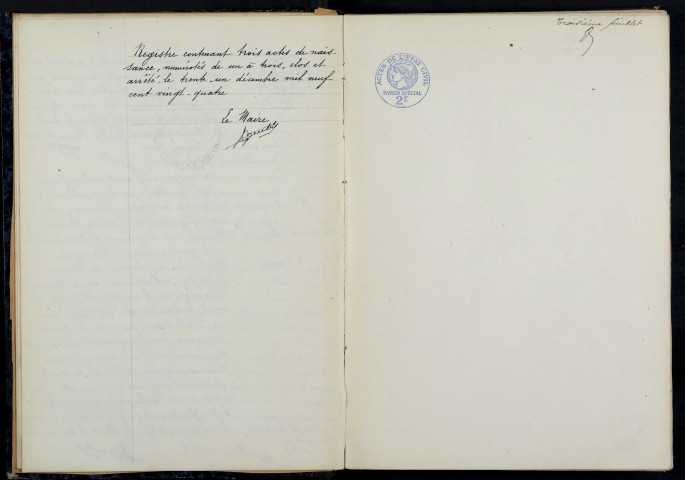 Registre contenant trois actes de nais-
sance, numérotés de un à trois, clos et
arrêté le trente-un décembre mil neuf
cent vingt-quatre
Le Maire
troisième feuillet
ACTES DE L'ETAT CIVIL
PAPIER SPECIAL
2F